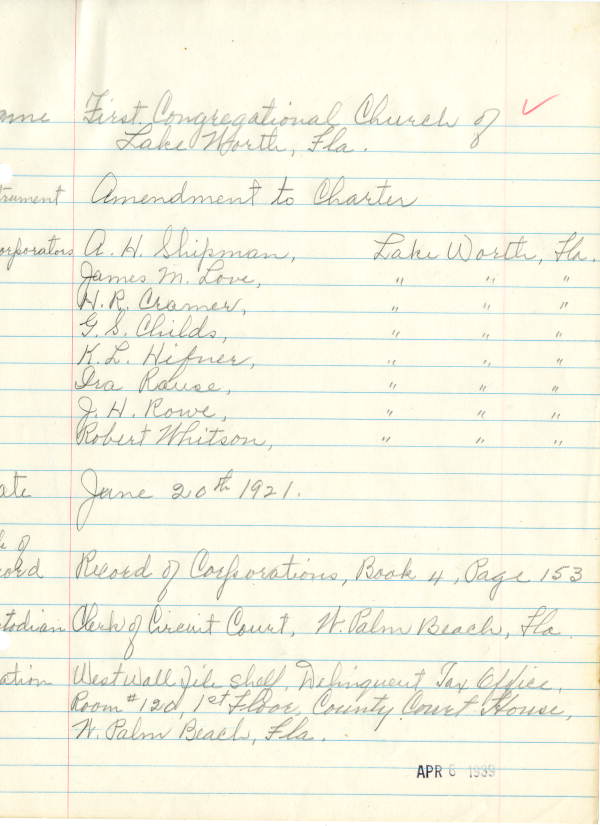 ame First Congregational Church of
Lake Worth, Fla.
trument Amendment to Charter
orporators A. H. Shipman, Lake Worth, Fla.
James M. Love, " " "
H. R. Cramer, " " "
G. S. Childs, " " "
K. L. Hifner, " " "
Ira Rouse, " " "
J. H. Rowe, " " "
Robert Whitson, " " "
ate June 20th 1921.
of
ord Record of Corporations, Book 4, Page 153
todian Clerk of Circuit Court, W. Palm Beach, Fla.
ation West Wall File Shelf, Delinquent Tax Office,
Room #120, 1st Floor, County Court House,
W. Palm Beach, Fla.
APR 6 1939